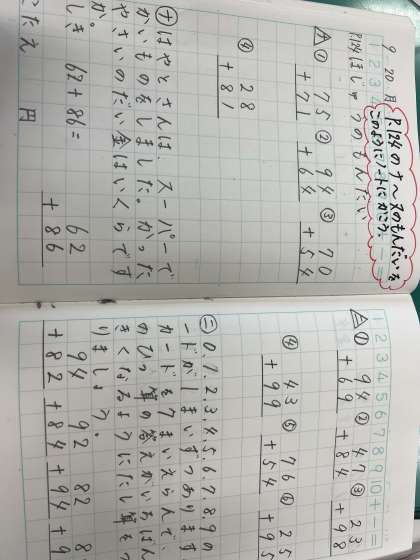 P.124のナ〜ヌのもんだいを
このようにノートにかこう。
9-20 月
P.124ほじゅうのもんだい
① 75 ② 94 ③ 70
+71 +64 +54
④ 28
+81
ナ はやとさんは、スーパーで
かいものをしました。かった
やさいのだい金はいくらです
か。
しき 62+86=
62
+86
こたえ 円
1 2 3 4 5 6 7 8 9 10 + - =
① 94 ② 47 ③ 23
+69 +84 +98
④ 43 ⑤ 76 ⑥ 25
+99 +54 +95
ニ 0.1.2.3.4.5.6.7.8.9の
ードが1まいずつあります
カードを7まいえらんで、
のひっ算の答えがいちばん
きくなるようにたし算をつ
りましょう。
94 92 82 8
+82 +84 +94 +9